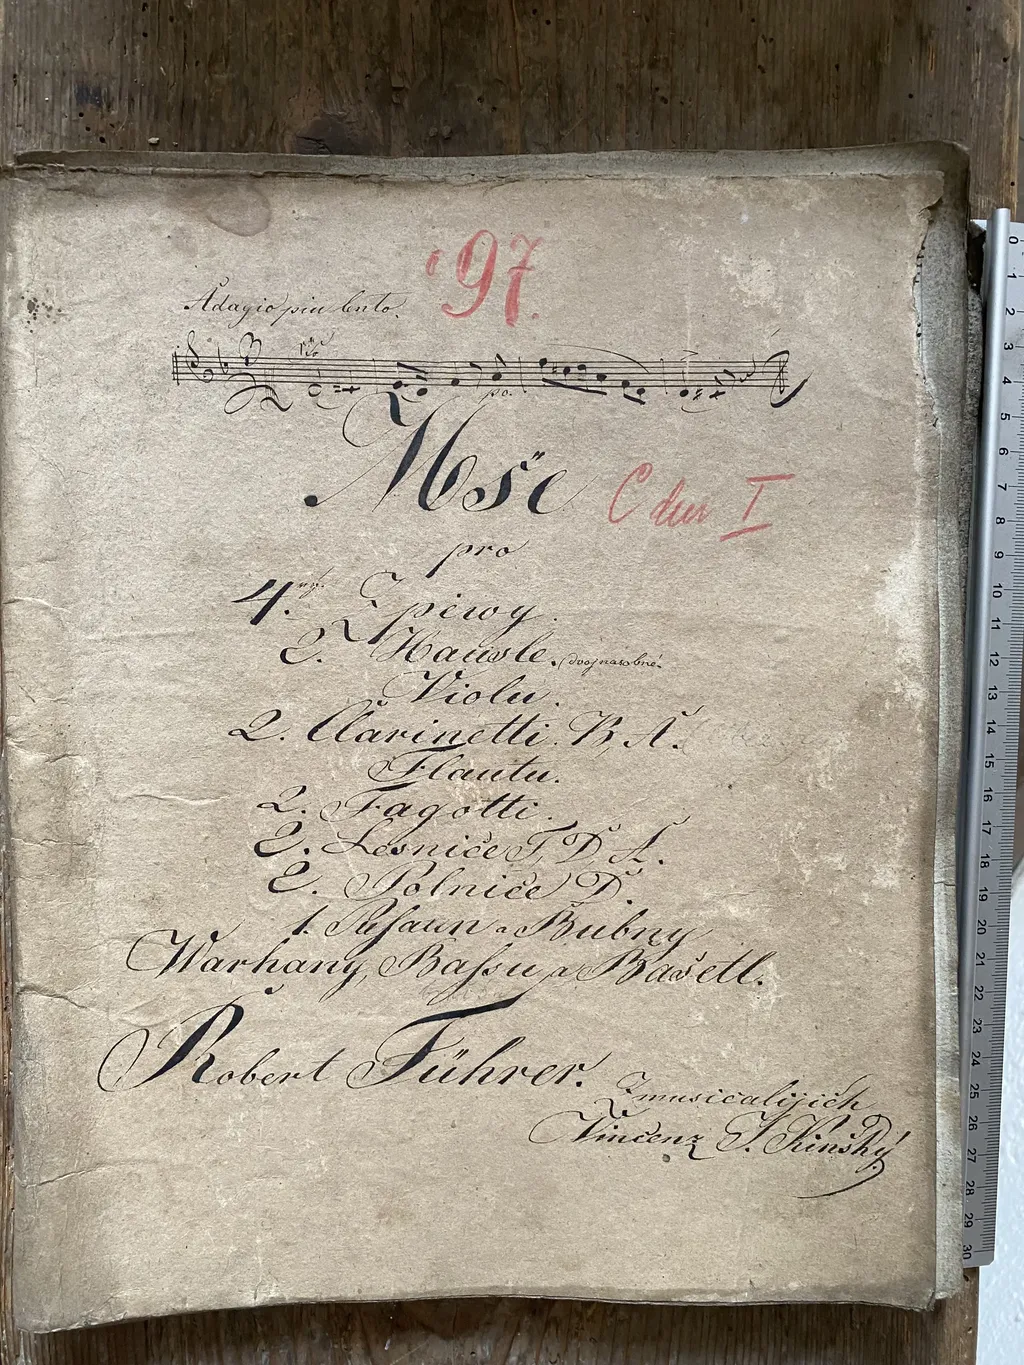 97.
Adagio piu lento.
po.
Mše
C dur I
pro
4. Zpěwy.
2. Hausle. (dvojnasobné.
Violu.
2. Clarinetti. B, A.
Flautu.
2. Fagotti.
2. Lesniče F, D, A.
2. Polniče D.
1. Pasaun a Bubny
Warhany, Bassu a Bašetl.
Robert Führer.
Z musicalijich
Vincenz J. Kinský
0 1 2 3 4 5 6 7 8 9 10 11 12 13 14 15 16 17 18 19 20 21 22 23 24 25 26 27 28 29 30